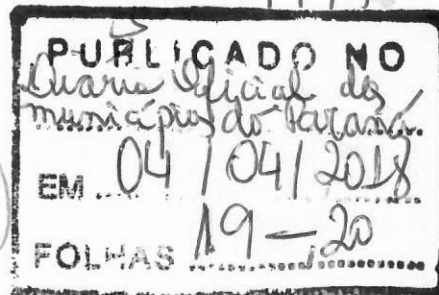 PUBLICADO NO
Diário Oficial dos
municípios do Paraná.
EM 04/04/2018
FOLHAS 19-20